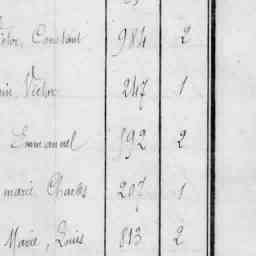 Victor, Constant 984 2
Victor 247 1
Emmanuel 892 2
marie Charles 207 1
Marie, Louis 813 2